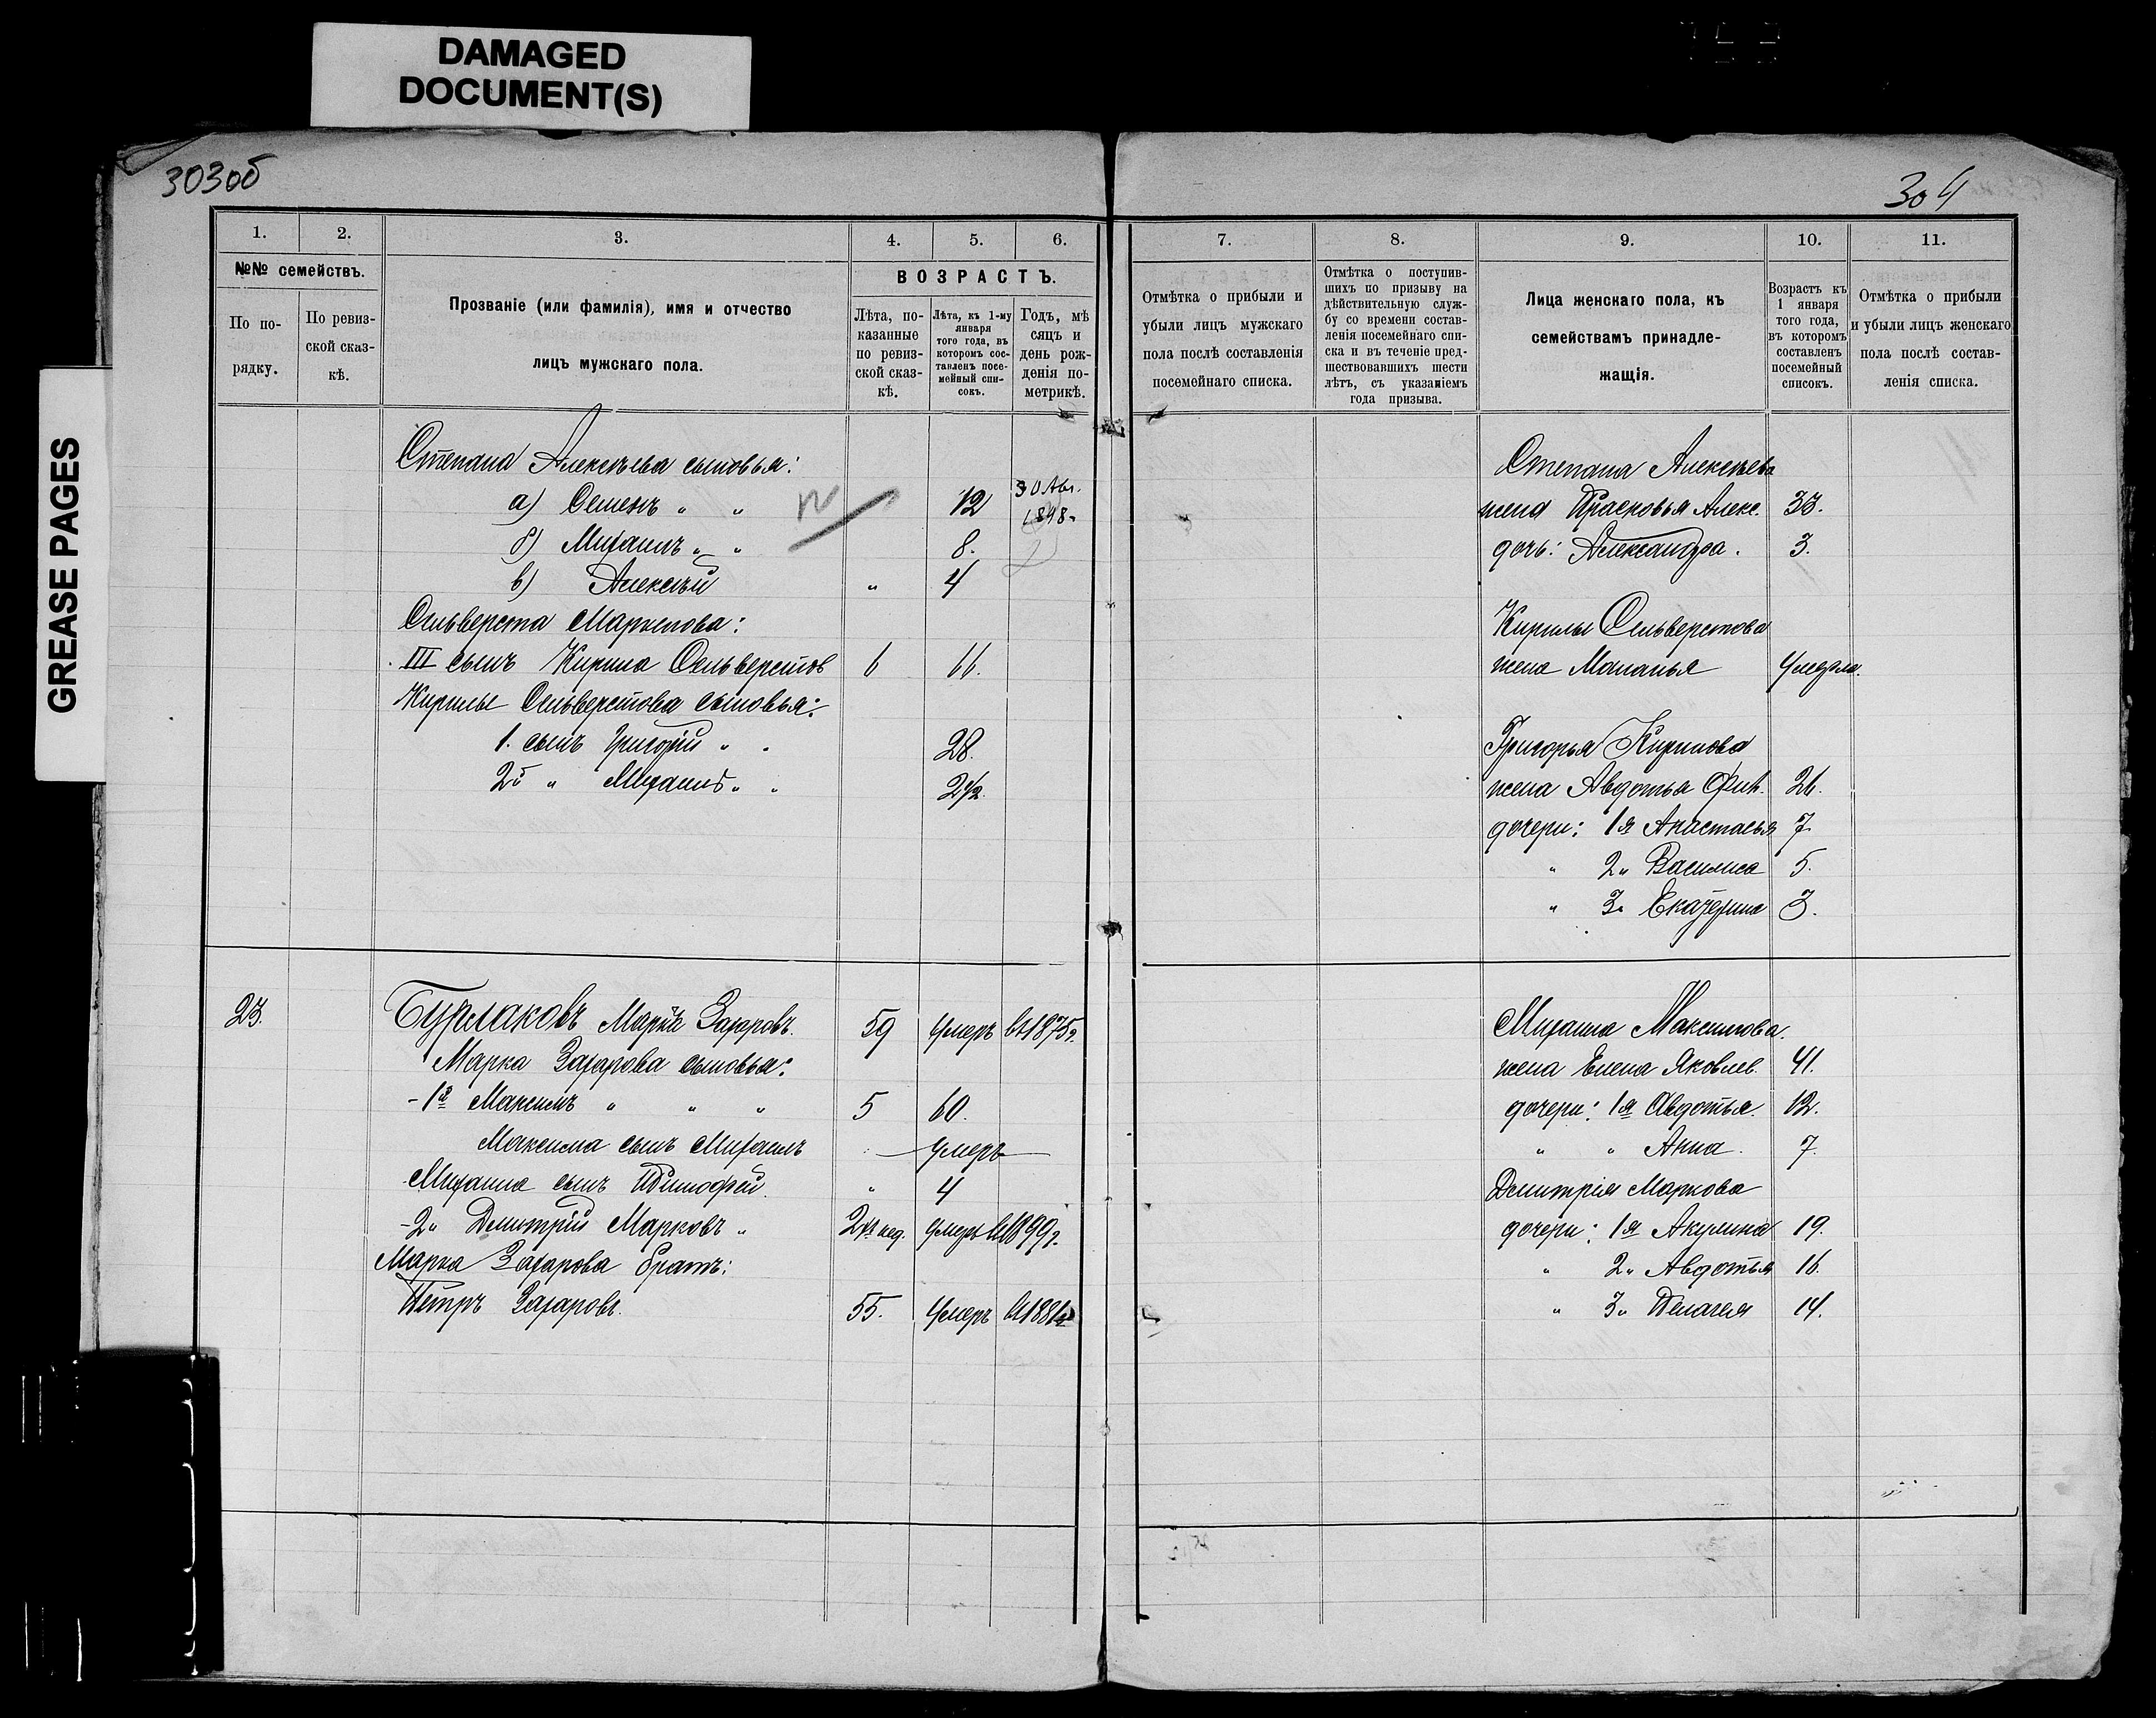 DAMAGED
DOCUMENT(S)
GREASE PAGES
303об
1.
2.
3.
4.
5.
6.
№№ семействъ.
По по-
рядку.
По ревиз-
ской сказ-
кѣ.
Прозваніе (или фамилія), имя и отчество
лицъ мужскаго пола.
ВОЗРАСТЪ.
Лѣта, по-
казанные
по ревиз-
ской сказ-
кѣ.
Лѣта, къ 1-му
января
того года, въ
которомъ сос-
тавленъ посе-
мейный спи-
сокъ.
Годъ, мѣ
сяцъ и
день рож-
денія по-
метрикѣ.
Степана Алексѣева сыновья:
а) Семенъ " " 12 30 Авг. 1898
б) Михаилъ " " 8.
в) Алексѣй " 4
Сельверста Маркелова:
III сынъ Кирила Сельверстов 6
Кирилы Сельверстова сыновья:
1. сынъ Григорій " " 28.
2й " Михаилъ " "
23. Бурлаковъ Маркъ Захаровъ. 59 Умеръ въ 1875г.
Марка Захарова сыновья:
- 1й Максимъ " " " 5 60.
Максима сынъ Михаилъ Умеръ
Михаила сынъ Тимофей. " 4
- 2" Дмитрій Марковъ " 2 нед. Умеръ въ 1899г.
Марка Захарова братъ:
Петръ Захаровъ. 55. Умеръ въ 1881г
304
7.
8.
9.
10.
11.
Отмѣтка о прибыли и
убыли лицъ мужскаго
пола послѣ составленія
посемейнаго списка.
Отмѣтка о поступив-
шихъ по призыву на
дѣйствительную служ-
бу со времени состав-
ленія посемейнаго спи-
ска и въ теченіе пред-
шествовавшихъ шести
лѣтъ, съ указаніемъ
года призыва.
Лица женскаго пола, къ
семействамъ принадле-
жащія.
Возрастъ къ
1 января
того года,
въ которомъ
составленъ
посемейный
списокъ.
Отмѣтка о прибыли
и убыли лицъ женскаго
пола послѣ состав-
ленія списка.
Степана Алексѣева
жена Прасковья Алекс. 33.
дочь: Александра. 3.
Кирилы Сельверстова
жена Маланья Умерла.
Григорья Кирилова
жена Авдотья 26.
дочери: 1я Анастасья 7
" 2" Василиса 5.
" 3" Екатерина 3.
Михаила Максимова.
жена Елена Яковлев. 41.
дочери: 1я Авдотья. 12.
" " Анна. 7.
Дмитрія Маркова
дочери: 1я Акулина 19.
" 2" Авдотья 16.
" 3" Пелагея 14.